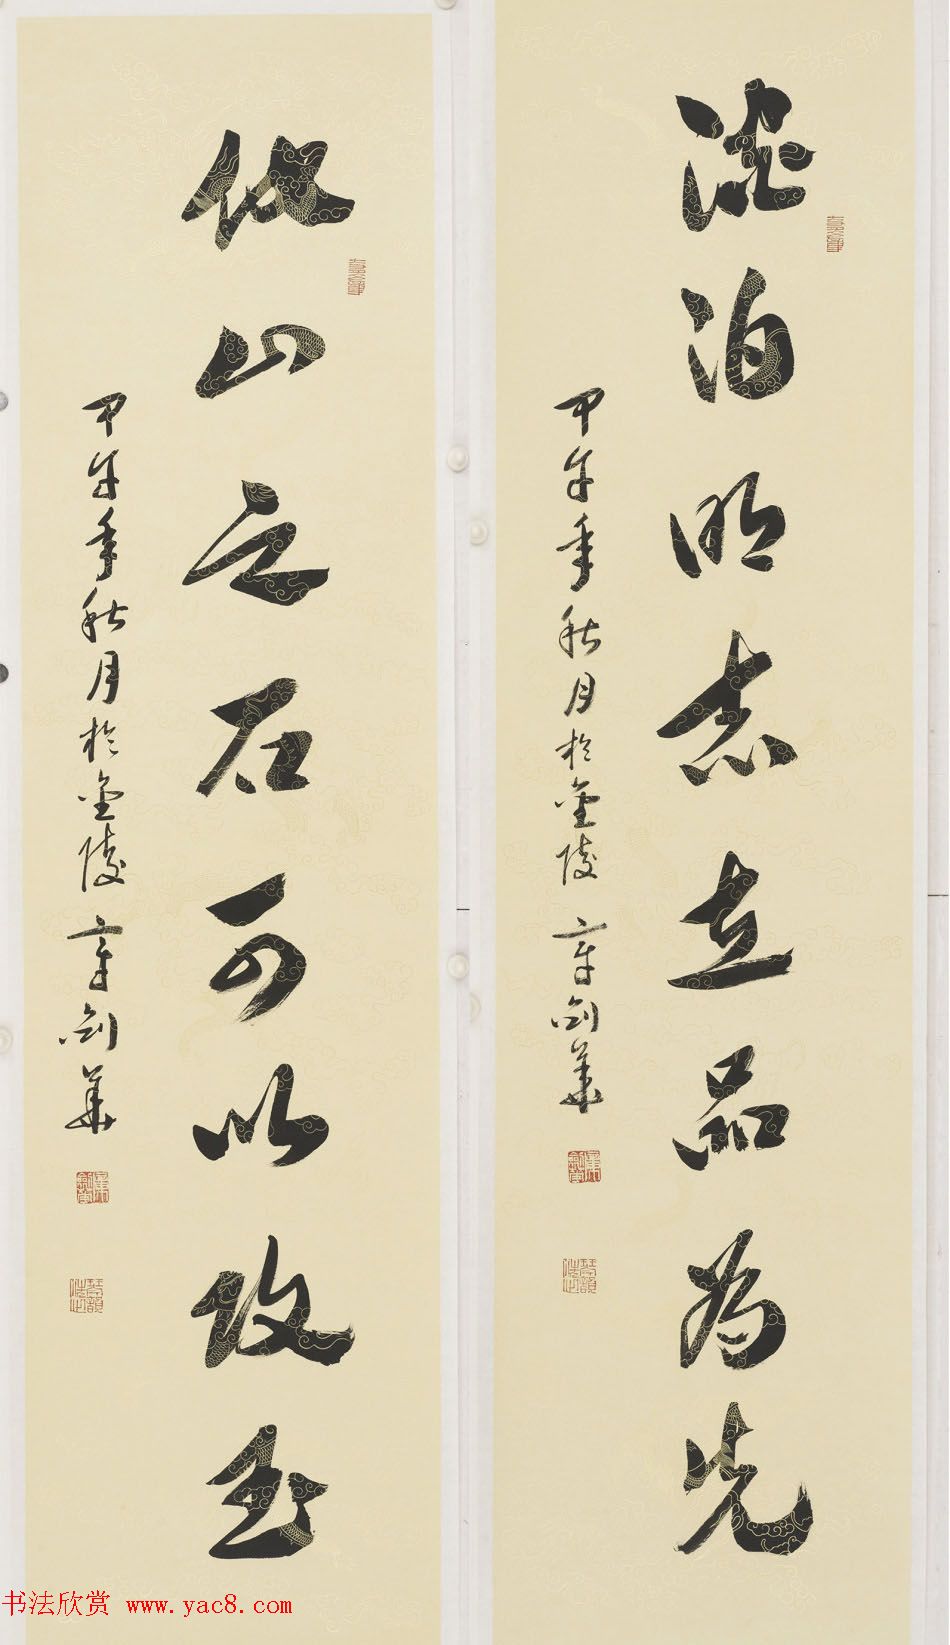 淡泊明志立品为先
甲午年秋月於金陵 章剑華
他山之石可以攻玉
甲午年秋月於金陵 章剑華
书法欣赏 www.yac8.com